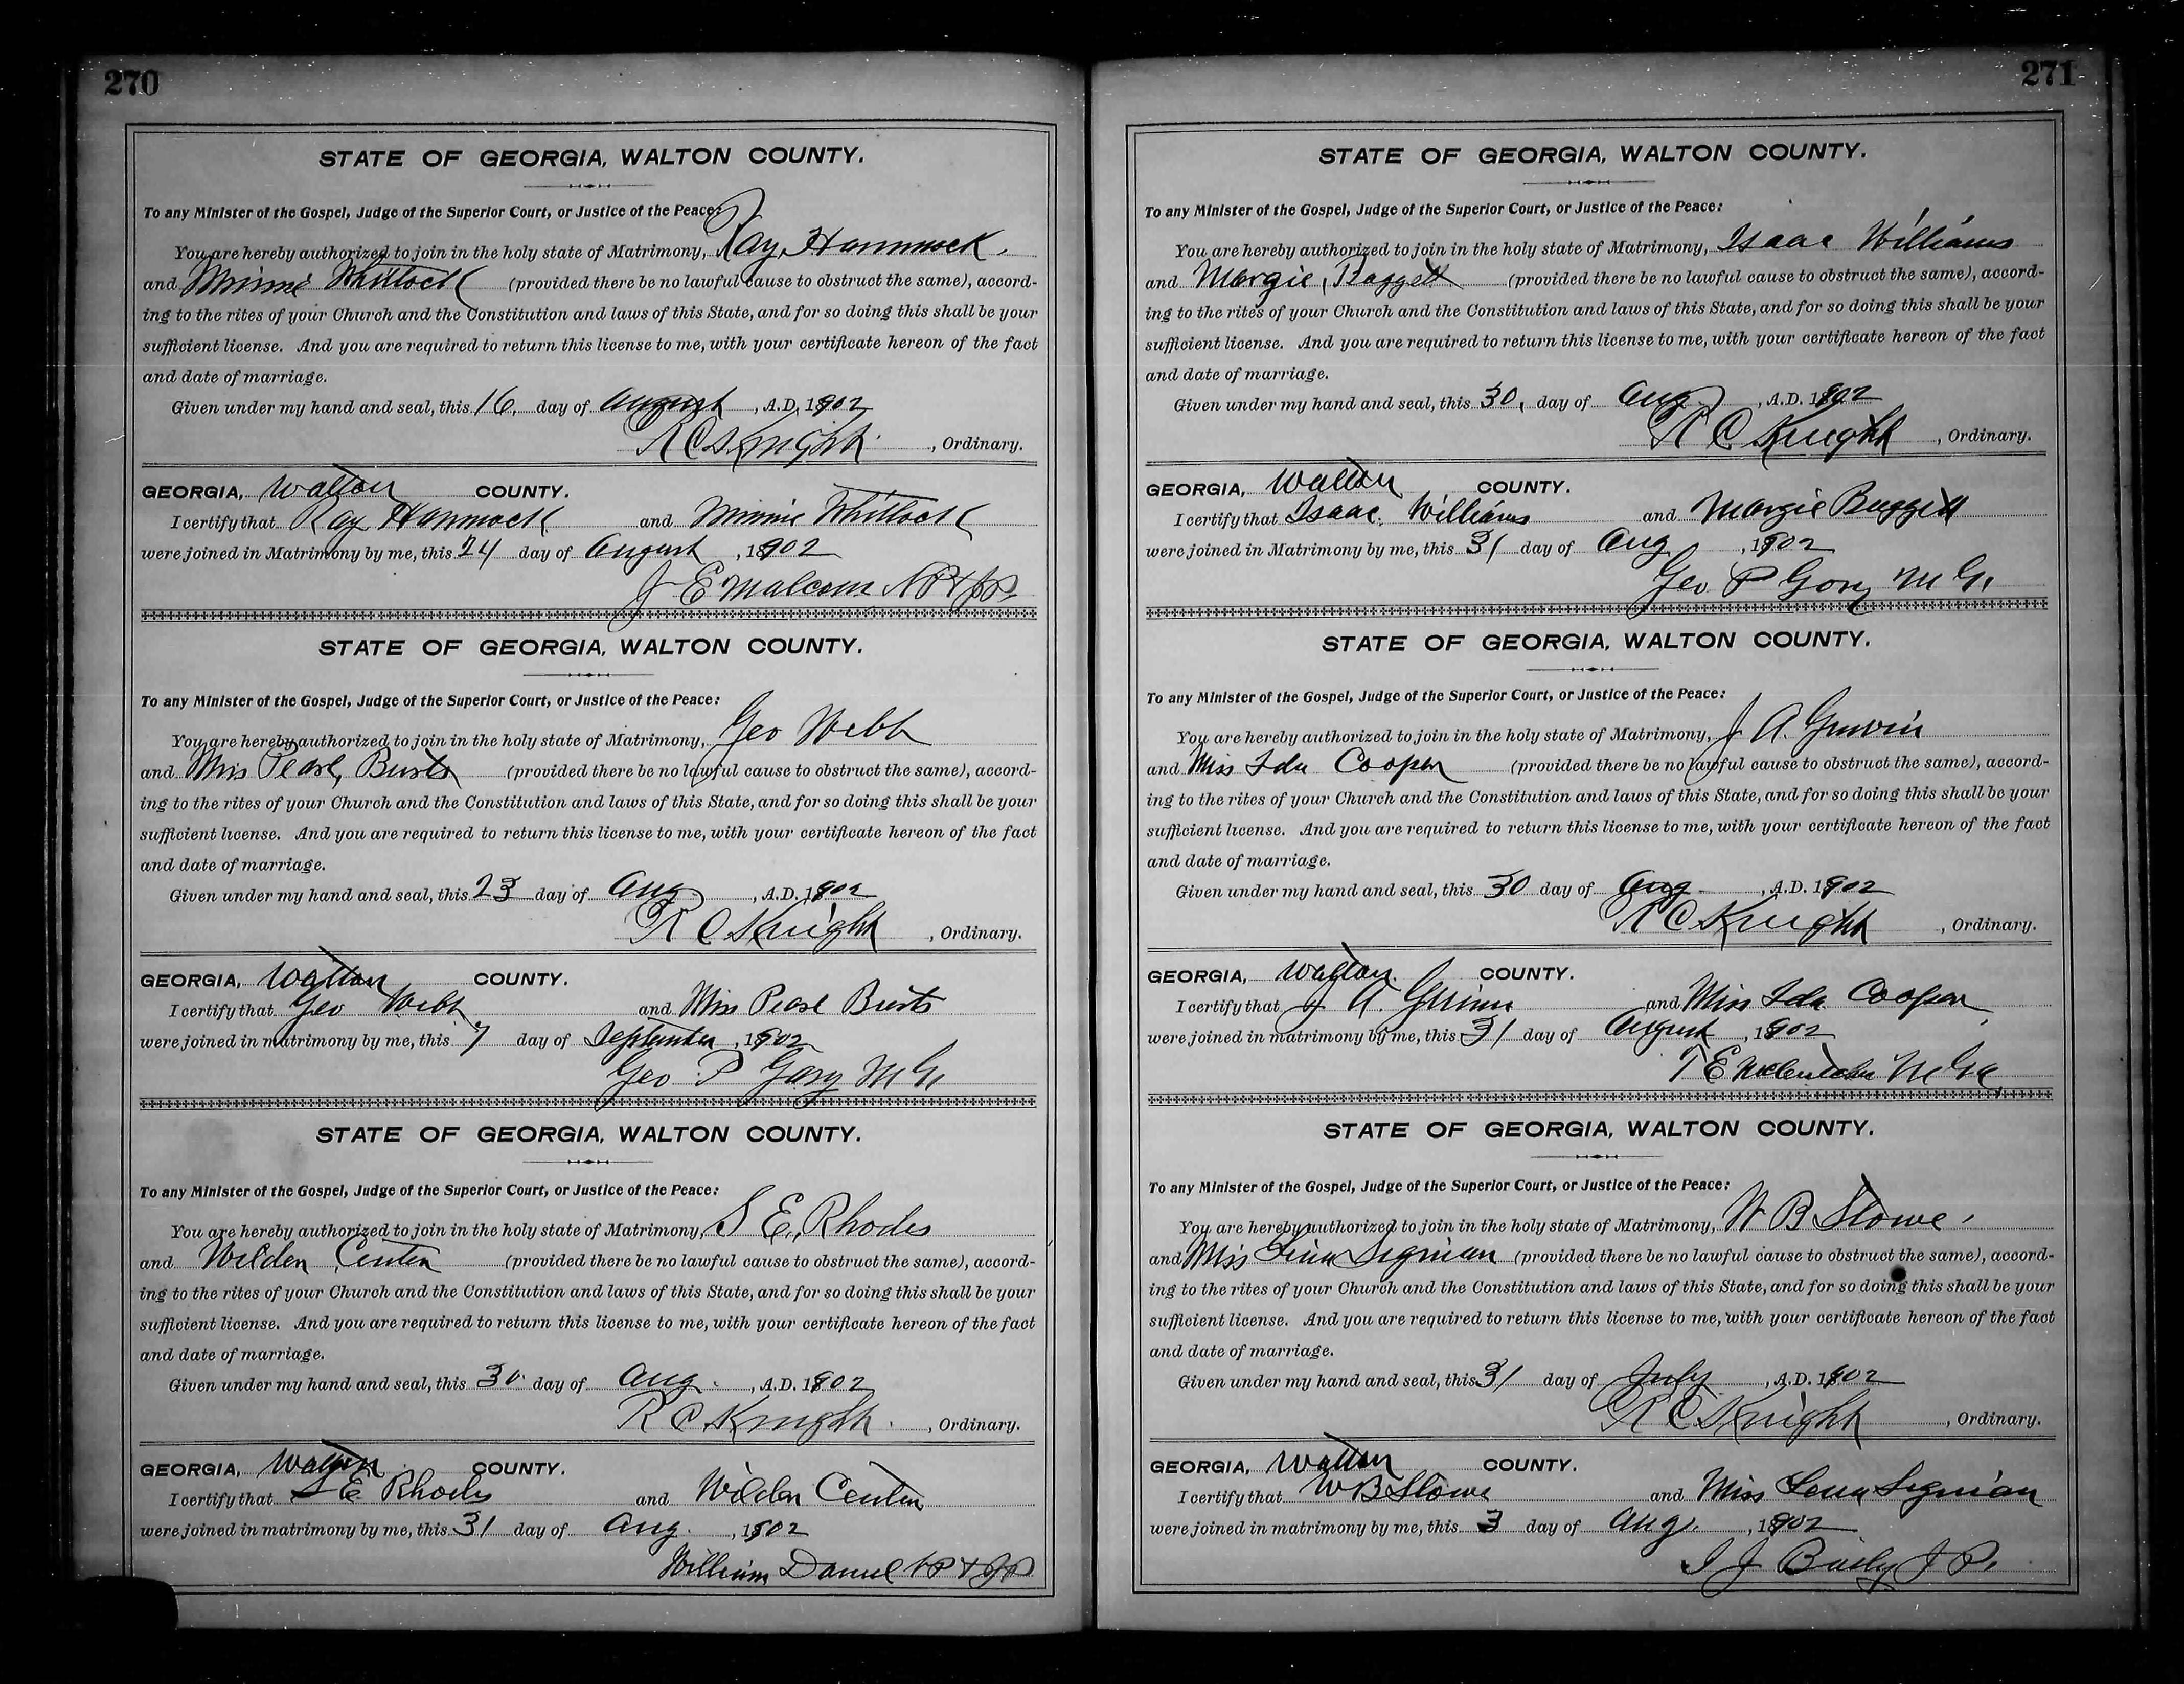 270
STATE OF GEORGIA, WALTON COUNTY.
To any Minister of the Gospel, Judge of the Superior Court, or Justice of the Peace:
You are hereby authorized to join in the holy state of Matrimony, Ray Hammock
and Minnie Whitlock (provided there be no lawful cause to obstruct the same), accord-
ing to the rites of your Church and the Constitution and laws of this State, and for so doing this shall be your
sufficient license. And you are required to return this license to me, with your certificate hereon of the fact
and date of marriage.
Given under my hand and seal, this 16. day of August, A.D. 1902
R C Knight, Ordinary.
GEORGIA, Walton COUNTY.
I certify that Ray Hammock and Minnie Whitlock
were joined in Matrimony by me, this 24 day of August, 1902
J E Malcom NP & JP.
STATE OF GEORGIA, WALTON COUNTY.
To any Minister of the Gospel, Judge of the Superior Court, or Justice of the Peace:
You are hereby authorized to join in the holy state of Matrimony, Geo Webb
and Miss Pearl (provided there be no lawful cause to obstruct the same), accord-
ing to the rites of your Church and the Constitution and laws of this State, and for so doing this shall be your
sufficient license. And you are required to return this license to me, with your certificate hereon of the fact
and date of marriage.
Given under my hand and seal, this 23 day of Aug, A.D. 1902
R C Knight, Ordinary.
GEORGIA, Walton COUNTY.
I certify that Geo Webb and Miss Pearl
were joined in matrimony by me, this 7 day of September, 1902
Geo P Gary M G
STATE OF GEORGIA, WALTON COUNTY.
To any Minister of the Gospel, Judge of the Superior Court, or Justice of the Peace:
You are hereby authorized to join in the holy state of Matrimony, S E, Rhodes
and Wilder (provided there be no lawful cause to obstruct the same), accord-
ing to the rites of your Church and the Constitution and laws of this State, and for so doing this shall be your
sufficient license. And you are required to return this license to me, with your certificate hereon of the fact
and date of marriage.
Given under my hand and seal, this 30 day of Aug., A.D. 1902
R C Knight, Ordinary.
GEORGIA, Walton COUNTY.
I certify that S E Rhodes and Wilder
were joined in matrimony by me, this 31 day of Aug., 1902
William Daniel NP & JP
271
STATE OF GEORGIA, WALTON COUNTY.
To any Minister of the Gospel, Judge of the Superior Court, or Justice of the Peace:
You are hereby authorized to join in the holy state of Matrimony, Isaac Williams
and Margie Baggett (provided there be no lawful cause to obstruct the same), accord-
ing to the rites of your Church and the Constitution and laws of this State, and for so doing this shall be your
sufficient license. And you are required to return this license to me, with your certificate hereon of the fact
and date of marriage.
Given under my hand and seal, this 30, day of Aug, A.D. 1902
R C Knight, Ordinary.
GEORGIA, Walton COUNTY.
I certify that Isaac Williams and Margie Baggett
were joined in Matrimony by me, this 31 day of Aug, 1902
Geo P Gary M G.
STATE OF GEORGIA, WALTON COUNTY.
To any Minister of the Gospel, Judge of the Superior Court, or Justice of the Peace:
You are hereby authorized to join in the holy state of Matrimony, J A.
and Miss Ida Cooper (provided there be no lawful cause to obstruct the same), accord-
ing to the rites of your Church and the Constitution and laws of this State, and for so doing this shall be your
sufficient license. And you are required to return this license to me, with your certificate hereon of the fact
and date of marriage.
Given under my hand and seal, this 30 day of Aug, A.D. 1902
R C Knight, Ordinary.
GEORGIA, Walton COUNTY.
I certify that J A. and Miss Ida Cooper
were joined in matrimony by me, this 31 day of August, 1902
T E
STATE OF GEORGIA, WALTON COUNTY.
To any Minister of the Gospel, Judge of the Superior Court, or Justice of the Peace:
You are hereby authorized to join in the holy state of Matrimony, W B Stowe
and Miss Lena Sigman (provided there be no lawful cause to obstruct the same), accord-
ing to the rites of your Church and the Constitution and laws of this State, and for so doing this shall be your
sufficient license. And you are required to return this license to me, with your certificate hereon of the fact
and date of marriage.
Given under my hand and seal, this 31 day of July, A.D. 1902
R C Knight, Ordinary.
GEORGIA, Walton COUNTY.
I certify that W B Stowe and Miss Lena Sigman
were joined in matrimony by me, this 3 day of Aug, 1902
J P.